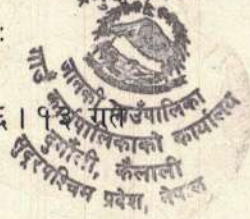 :
जानकी गाउँपालिका
गाउँ कार्यपालिकाको कार्यालय
दुर्गौली, कैलाली
सुदूरपश्चिम प्रदेश, नेपाल
। १३ गते